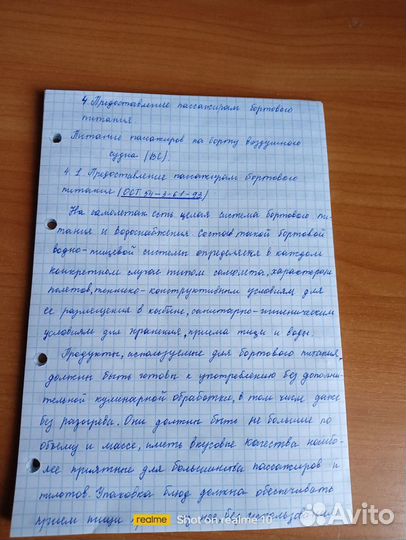 4. Предоставление пассажирам бортового
питания
Питание пассажиров на борту воздушного
судна (ВС).
4.1. Предоставление пассажирам бортового
питания (ОСТ 54-3-61-93)
На самолетах есть целая система бортового пи-
тания и водоснабжения. Состав такой бортовой
водно-пищевой системы определяется в каждом
конкретном случае типом самолета, характером
полетов, технико-конструктивным условиям для
ее размещения в кабине, санитарно-гигиеническим
условиям для хранения, приема пищи и воды.
Продукты, используемые для бортового питания,
должны быть готовы к употреблению без дополни-
тельной кулинарной обработки, в том числе даже
без разогрева. Они должны быть не большие по
объему и массе, иметь вкусовые качества наибо-
лее приятные для большинства пассажиров и
пилотов. Упаковка блюд должна обеспечивать
прием пищи без
realme Shot on realme 10
Avito